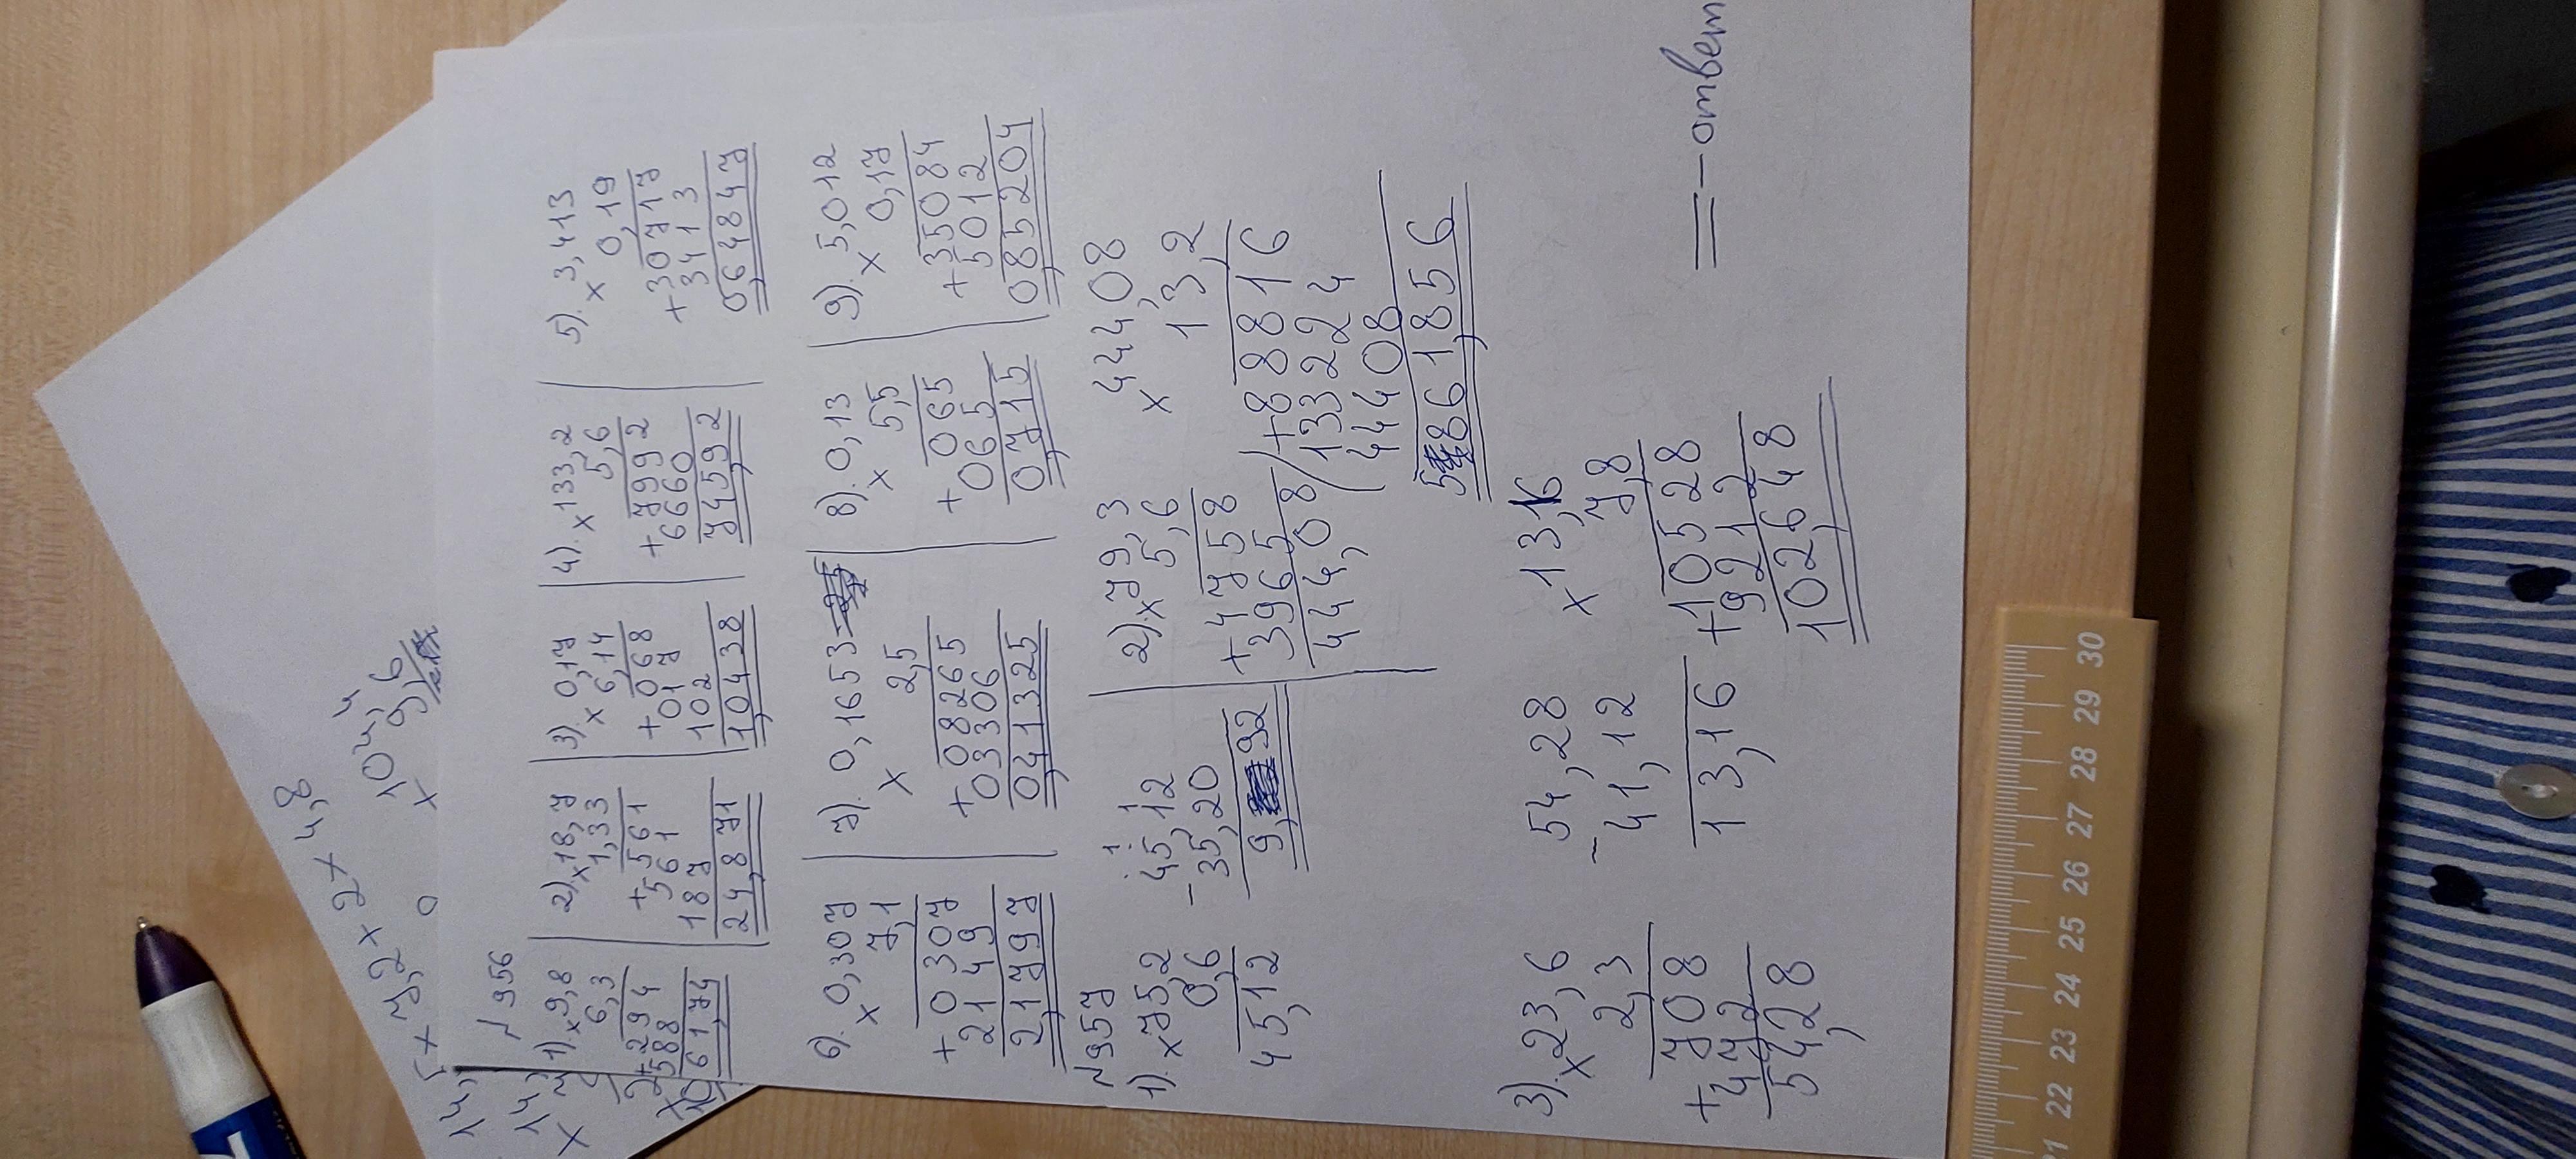 14,5 x 7,2 x 2 x 4,8
14,
x 7,
0
104,4
x 9,6
N 956
1). x 9,8
6,3
+ 294
588
61,74
2). x 18,7
x 1,33
+ 561
561
187
24,871
3). 0,17
x 6,14
+ 068
017
102
1,0438
4). x 133,2
5,6
+ 7992
6660
745,92
5). 3,413
x 0,19
+ 30717
3413
0,64847
6). x 0,307
7,1
+ 0307
2149
2,1797
7). 0,1653
x 2,5
+ 08265
03306
0,41325
8). 0,13
x 5,5
+ 065
065
0,715
9). 5,012
x 0,17
+ 35084
5012
0,85204
N 957
1). x 75,2
0,6
45,12
- 45,12
35,20
9,92
2). x 79,3
5,6
+ 4758
3965
444,08
x 444,08
13,2
+ 88816
133224
44408
5861,856
3). x 23,6
2,3
+ 708
472
54,28
- 54,28
41,12
13,16
x 13,16
7,8
+ 10528
9212
102,648
= - ответ
21 22 23 24 25 26 27 28 29 30